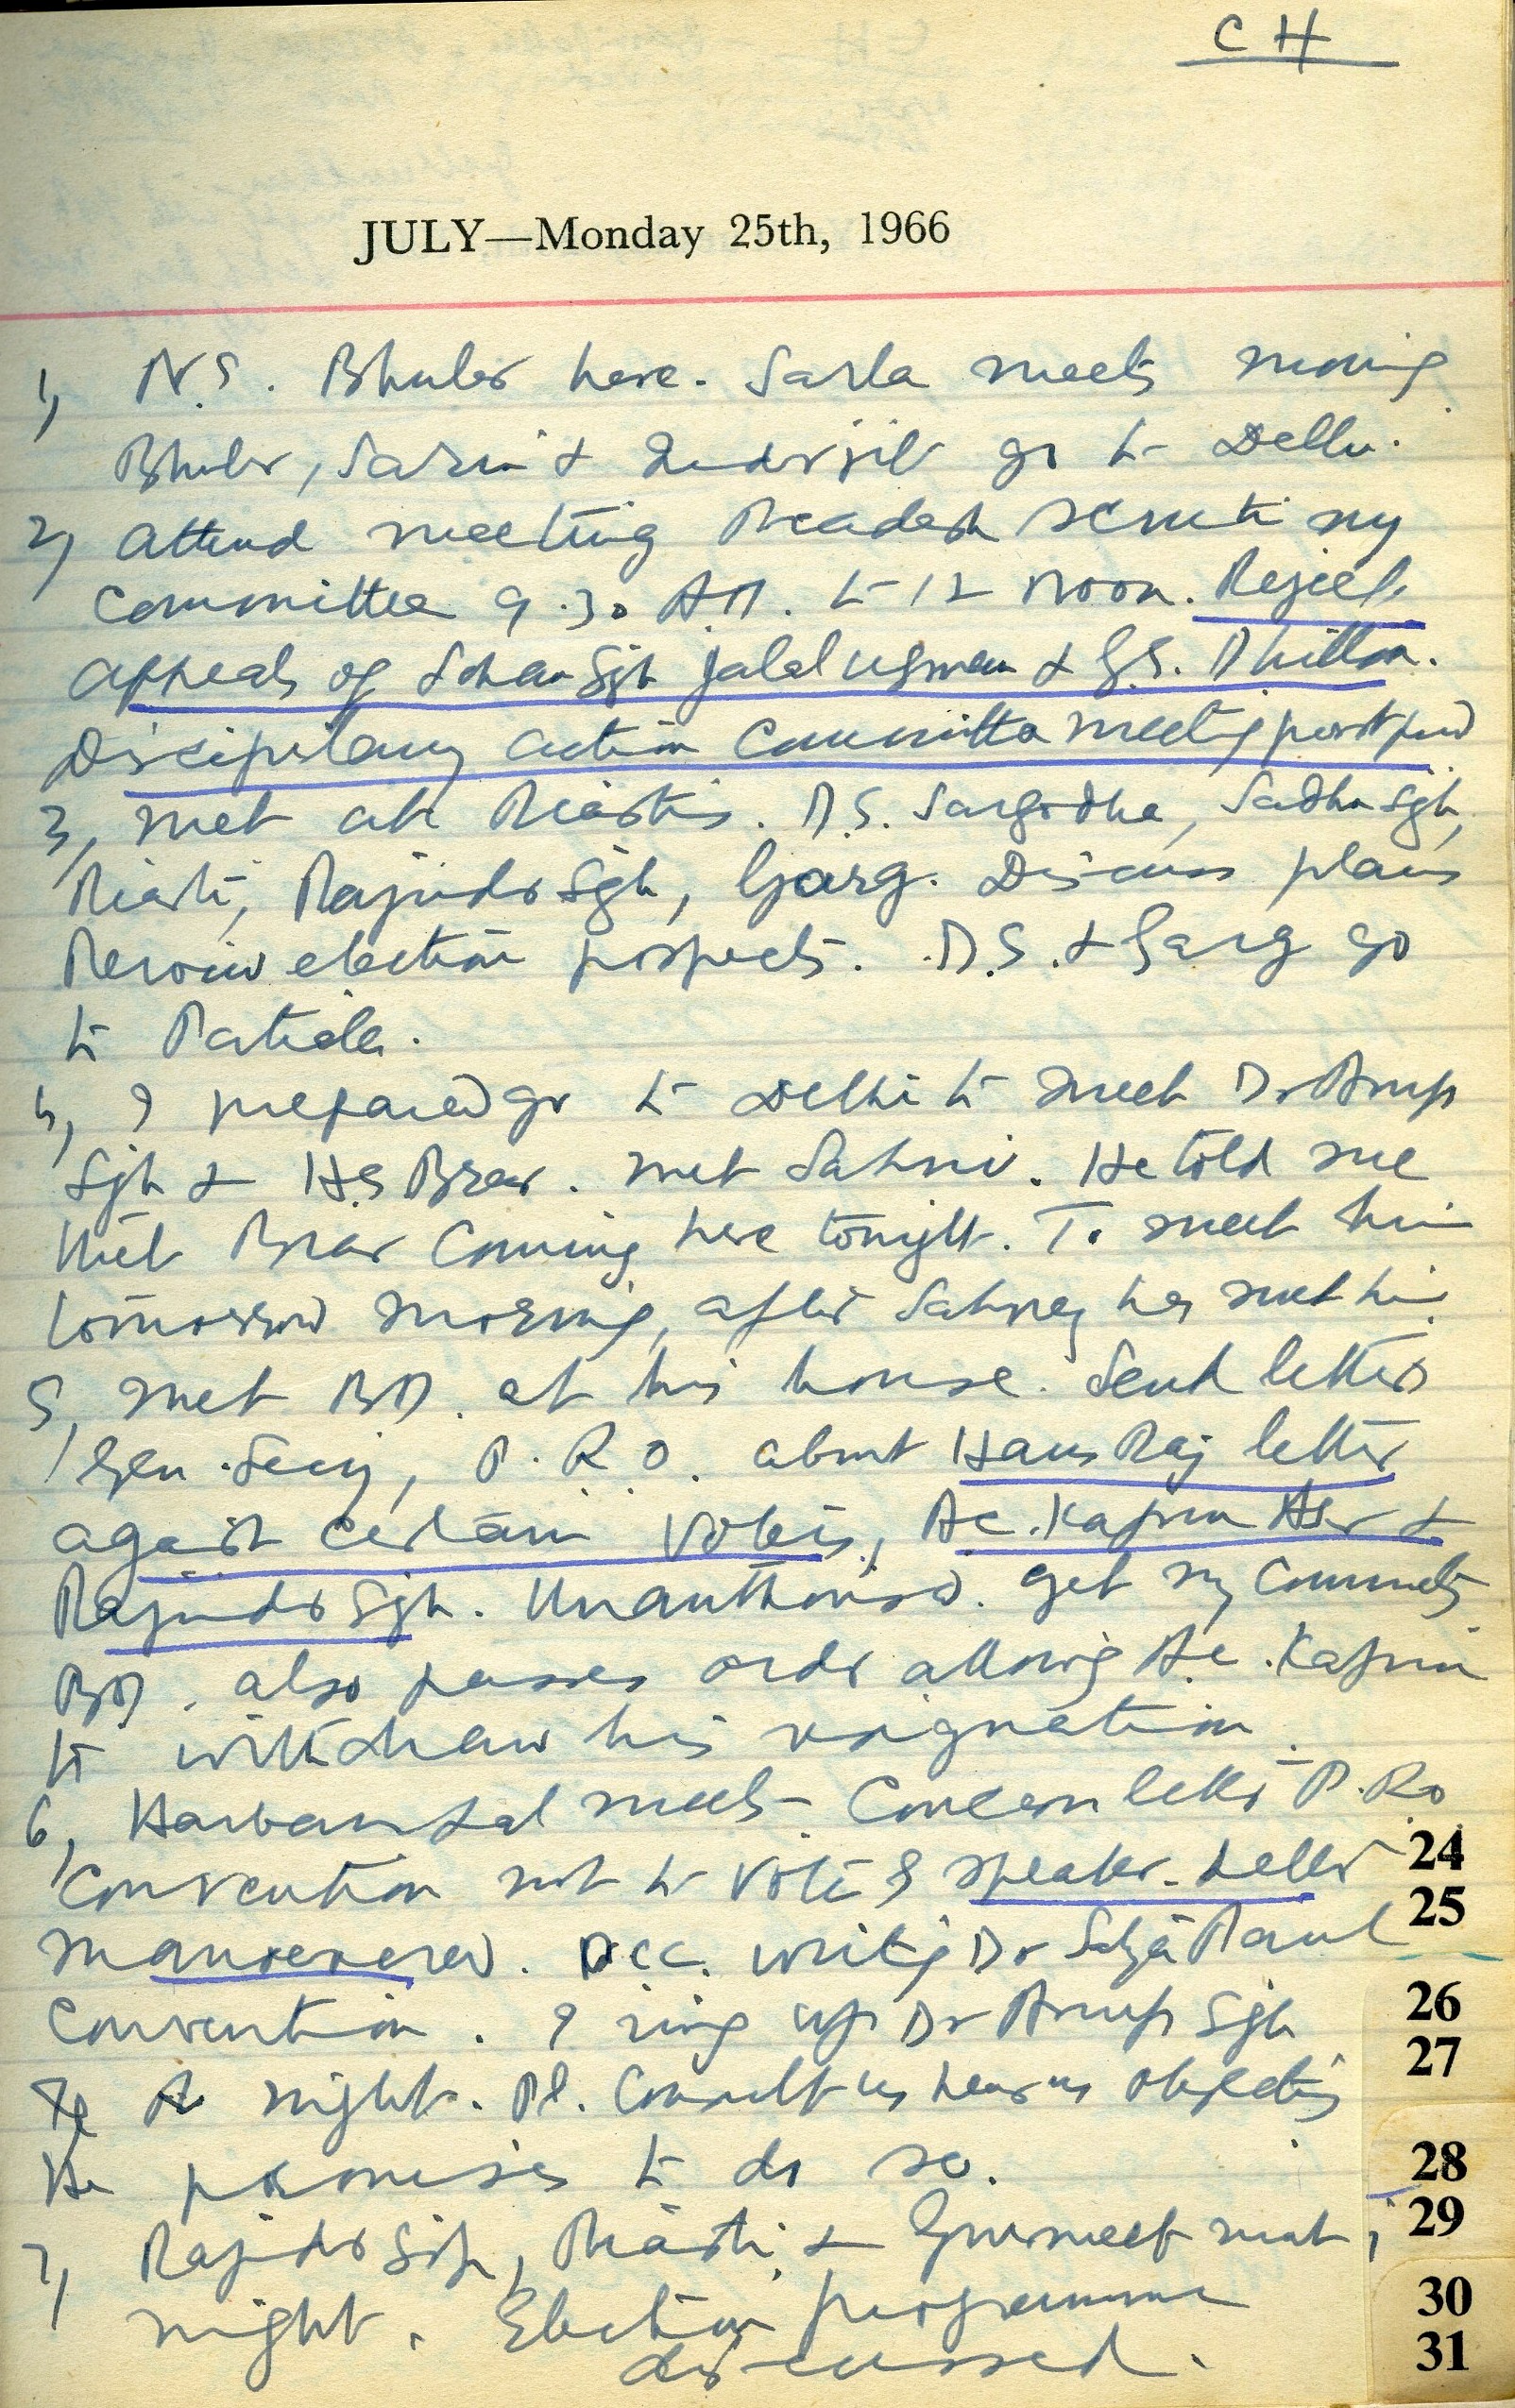 C H
JULY—Monday 25th, 1966
1) N.S. Bhuler here. Sarla meets
Bhuler, Sarin & go to Delhi.
2) Attend meeting Pradesh scrutiny
Committee 9.30 A.M. to 12 Noon. Reject
appeals of Sohan Sgh Jalal Usman & G.S. Dhillon.
Disciplinary action Committee meeting postponed
3, met at Piasti's. D.S. Sargodha, Sadhu Sgh,
Rajindr Sgh, Garg. Discuss plans
Review election prospects. D.S. & Garg go
to Patiala.
4, I prepared go to Delhi to meet Dr Anup
Sgh & H.S Brar. met Sahni. He told me
that Brar Coming here tonight. To meet him
tomorrow morning, after Sahney has met him
5, met BD. at his house. Send letters
Gen. Secy, P.R.O. about Hans Raj letter
against certain voters, Ac. Kapur Asr &
Rajindr Sgh. Unauthorised. Get my Comments
BD. also passes order allowing Ac. Kapur
to withdraw his resignation.
6, Harbans Lal meets. Concern letter P.R.O
Convention not to vote & speaker. Letter
manoeuvered. DCC. writing Dr Satya Paul
Convention. I ring up Dr Anup Sgh
at night. Pl. Consult us hear us objections
He promises to do so.
7, Rajindr Sgh, & Gurmeet met,
night. Election programme
discussed.
24
25
26
27
28
29
30
31